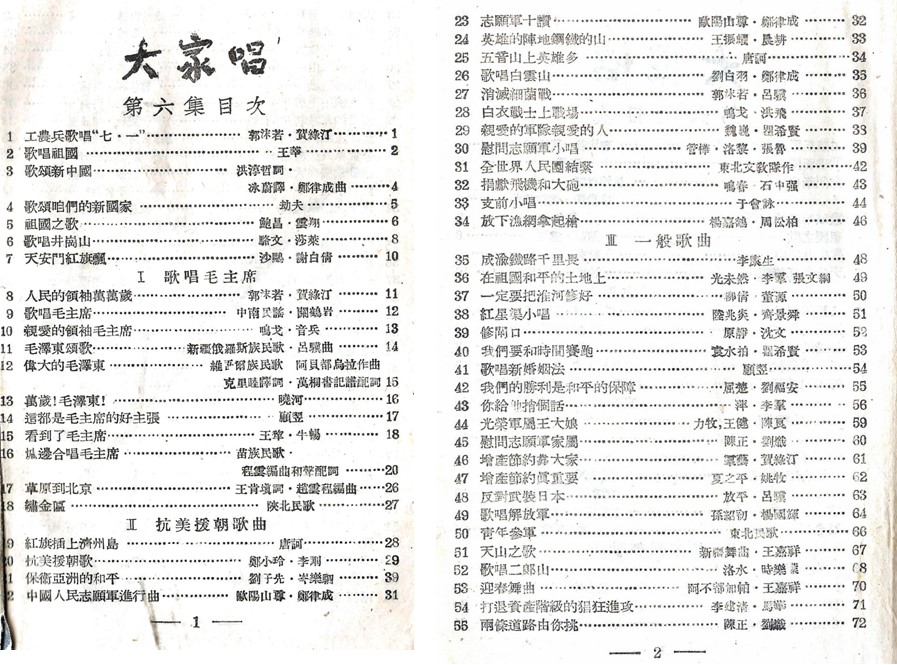 大家唱
第六集目次
1 工農兵歌唱“七·一”………郭沫若·賀綠汀………1
2 歌唱祖國………王莘………2
3 歌頌新中國………洪淳哲詞·
冰蔚譯·鄭律成曲………4
4 歌頌咱們的新國家………劫夫………5
5 祖國之歌………鮑昌·雲翔………6
6 歌唱井崗山………駱文·莎萊………8
7 天安門紅旗飄………沙鷗·謝白倩………10
Ⅰ 歌唱毛主席
8 人民的領袖萬萬歲………郭沫若·賀綠汀………11
9 歌唱毛主席………中南民謠·關鶴岩………12
10 親愛的領袖毛主席………鳴戈·音兵………13
11 毛澤東頌歌………新疆俄羅斯族民歌·呂驥曲………14
12 偉大的毛澤東………維吾爾族民歌 阿員都烏拉作曲
克里睦譯詞·萬桐書記譜配詞 15
13 萬歲!毛澤東!………曉河………16
14 這都是毛主席的好主張………顧翌………17
15 看到了毛主席………王莘·牛暢………18
16 邊合唱毛主席………苗族民歌·
程雲編曲和聲配詞………20
17 草原到北京………王肯填詞·趙雲程編曲………26
18 繡金匾………陝北民歌………27
Ⅱ 抗美援朝歌曲
9 紅旗插上濟州島………唐訶………28
20 抗美援朝歌………鄭小玲·李則………29
1 保衛亞洲的和平………劉子先·岑樂嗣………30
2 中國人民志願軍進行曲………歐陽山尊·鄭律成………31
— 1 —
23 志願軍十讚………歐陽山尊·鄭律成………32
24 英雄的陣地鋼鐵的山………王振·晨耕………33
25 五音山上英雄多………唐訶………34
26 歌唱白雲山………劉白羽·鄭律成………35
27 消滅細菌戰………郭沫若·呂驥………36
28 白衣戰士上戰場………鳴戈·洪飛………37
29 親愛的軍隊親愛的人………魏巍·瞿希賢………38
30 慰問志願軍小唱………管樺·洛黎·張魯………39
31 全世界人民團結緊………東北文教隊作………42
32 捐獻飛機和大砲………鳴春·石中强………43
33 支前小唱………于會詠………44
34 放下漁網拿起槍………楊嘉鵠·周松柏………46
Ⅲ 一般歌曲
35 成渝鐵路千里長………李康生………48
36 在祖國和平的土地上………光未然·李羣 張文綱………49
37 一定要把淮河修好………柳倩·董源………50
38 紅星集小唱………陸兆炎·齊景舜………51
39 修閘口………原詩·沈文………52
40 我們要和時間賽跑………袁水拍·瞿希賢………53
41 歌唱新婚姻法………顧翌………54
42 我們的勝利是和平的保障………屈楚·劉福安………55
43 你給咱捎個話………萍·李羣………56
44 光榮軍屬王大娘………力牧、王德·陳真………59
45 慰問志願軍家屬………陳正·劉熾………60
46 增產節約靠大家………軍驁·賀綠汀………61
47 增產節約真重要………夏之平·姚牧………62
48 反對武裝日本………放平·呂驥………63
49 歌唱解放軍………孫韶初·楊國輝………64
50 青年參軍………東北民歌………66
51 天山之歌………新疆舞曲·王嘉祥………67
52 歌唱二郎山………洛水·時樂濛………68
53 迎春舞曲………阿不都加帕·王嘉祥………70
54 打退資產階級的猖狂進攻………李建清·馬華………71
55 兩條道路由你挑………陳正·劉熾………72
— 2 —